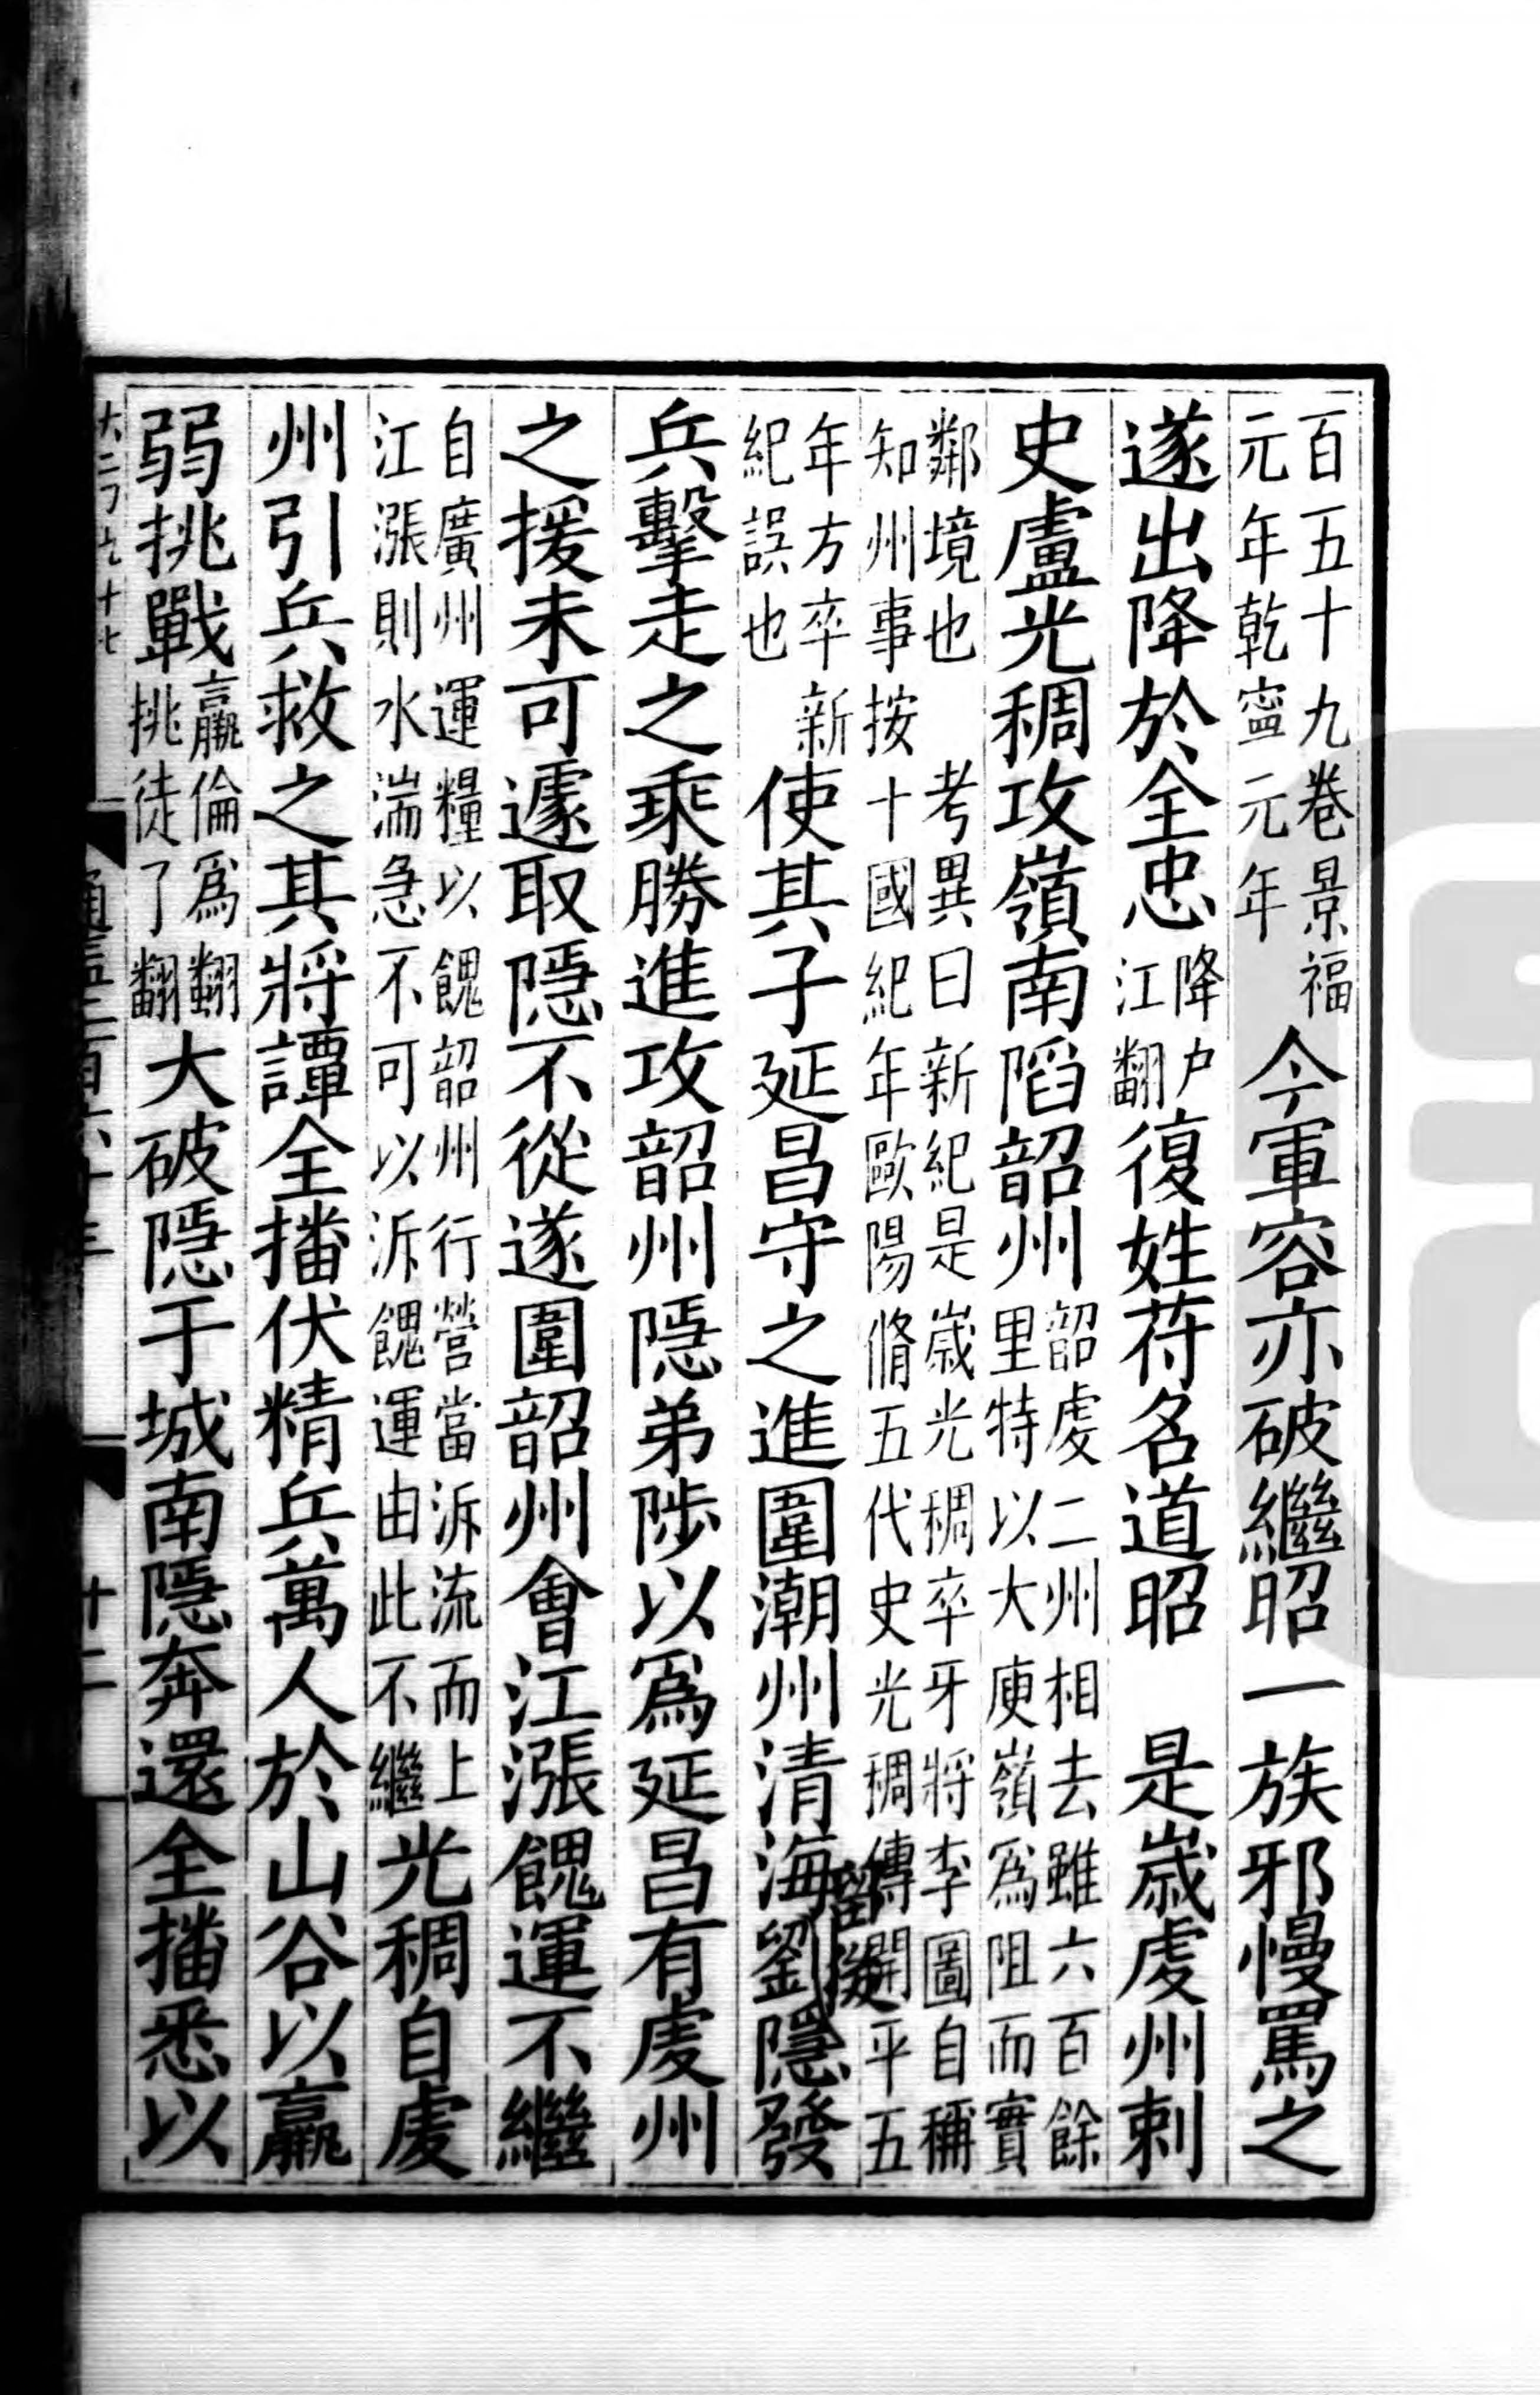 百五十九卷景福元年乾寧元年　今軍容亦破繼昭一族邪慢罵之
遂出降於全忠降户江翻復姓苻名道昭　是歲虔州刺
史盧光稠攻嶺南陷韶州韶虔二州相去雖六百餘里特以大庾嶺爲阻而實
鄰境也　考異曰新紀是歲光稠卒牙將李圖自稱知州事按十國紀年歐陽脩五代史光稠傳開平五
年方卒新紀誤也使其子延昌守之進圍潮州清海劉隱發
兵擊走之乘勝進攻韶州隱弟陟以爲延昌有虔州
之援未可遽取隱不從遂圍韶州會江漲餽運不繼
自廣州運糧以餽韶州行營當泝流而上江漲則水湍急不可以泝餽運由此不繼光稠自虔
州引兵救之其將譚全播伏精兵萬人於山谷以羸
弱挑戰羸倫爲翻挑徒了翻大破隱于城南隱奔還全播悉以
十二